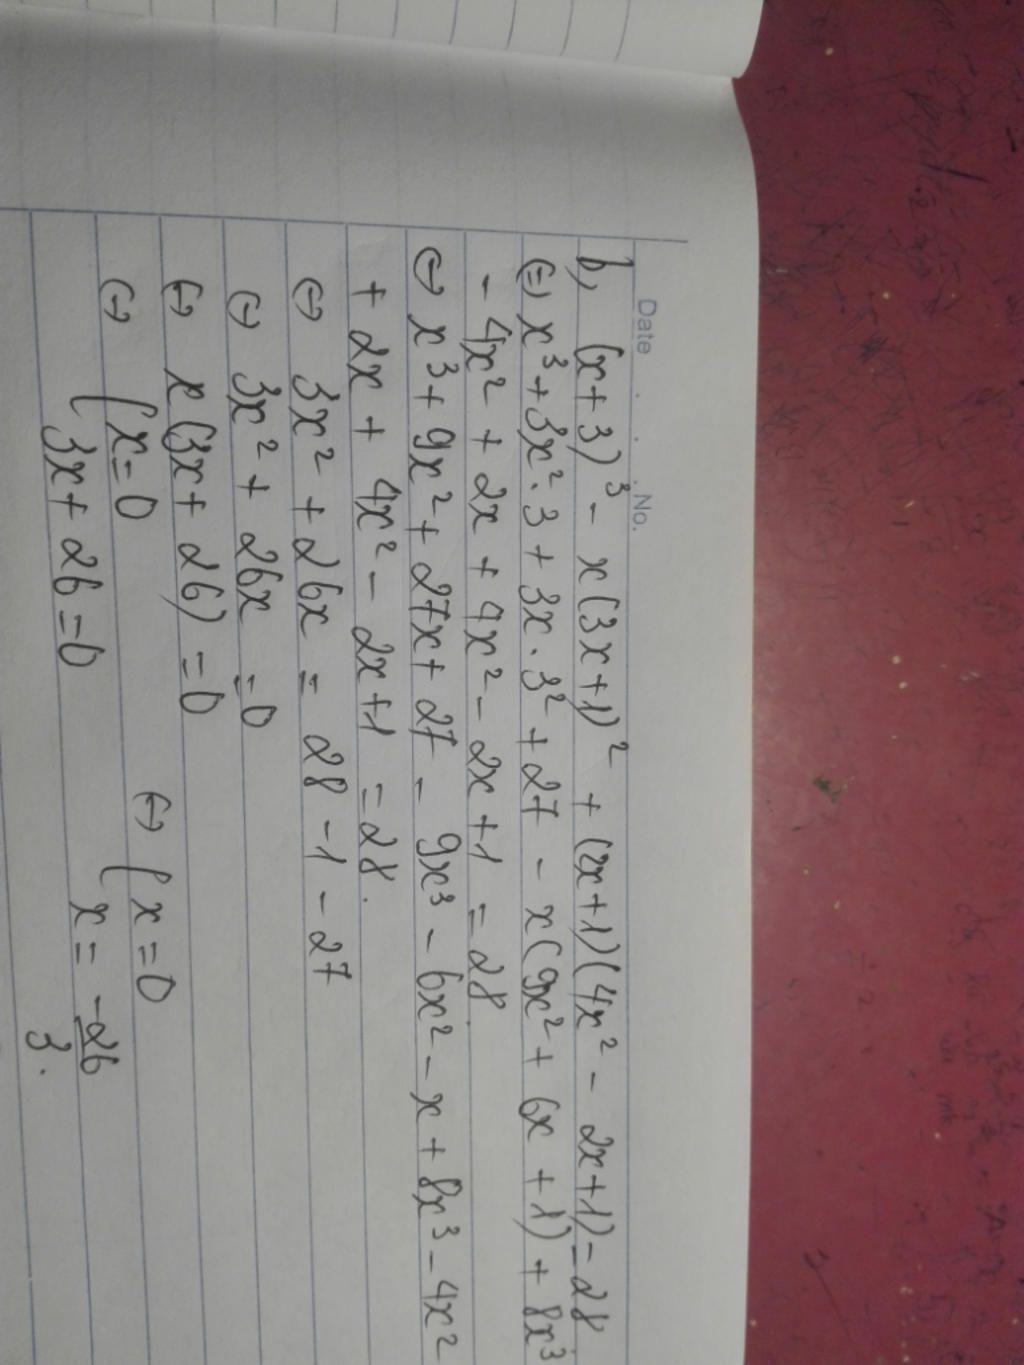 Date . . . No.
b, (x+3)³ - x(3x+1)² + (2x+1)(4x² - 2x+1) = 28
(=) x³ + 3x².3 + 3x.3² + 27 - x(9x² + 6x + 1) + 8x³
- 4x² + 2x + 4x² - 2x + 1 = 28
(-) x³ + 9x² + 27x + 27 - 9x³ - 6x² - x + 8x³ - 4x²
+ 2x + 4x² - 2x + 1 = 28.
(-) 3x² + 26x = 28 - 1 - 27
(-) 3x² + 26x = 0
(-) x(3x + 26) = 0
(-) { x = 0
3x + 26 = 0
(-) { x = 0
x = -26/3.